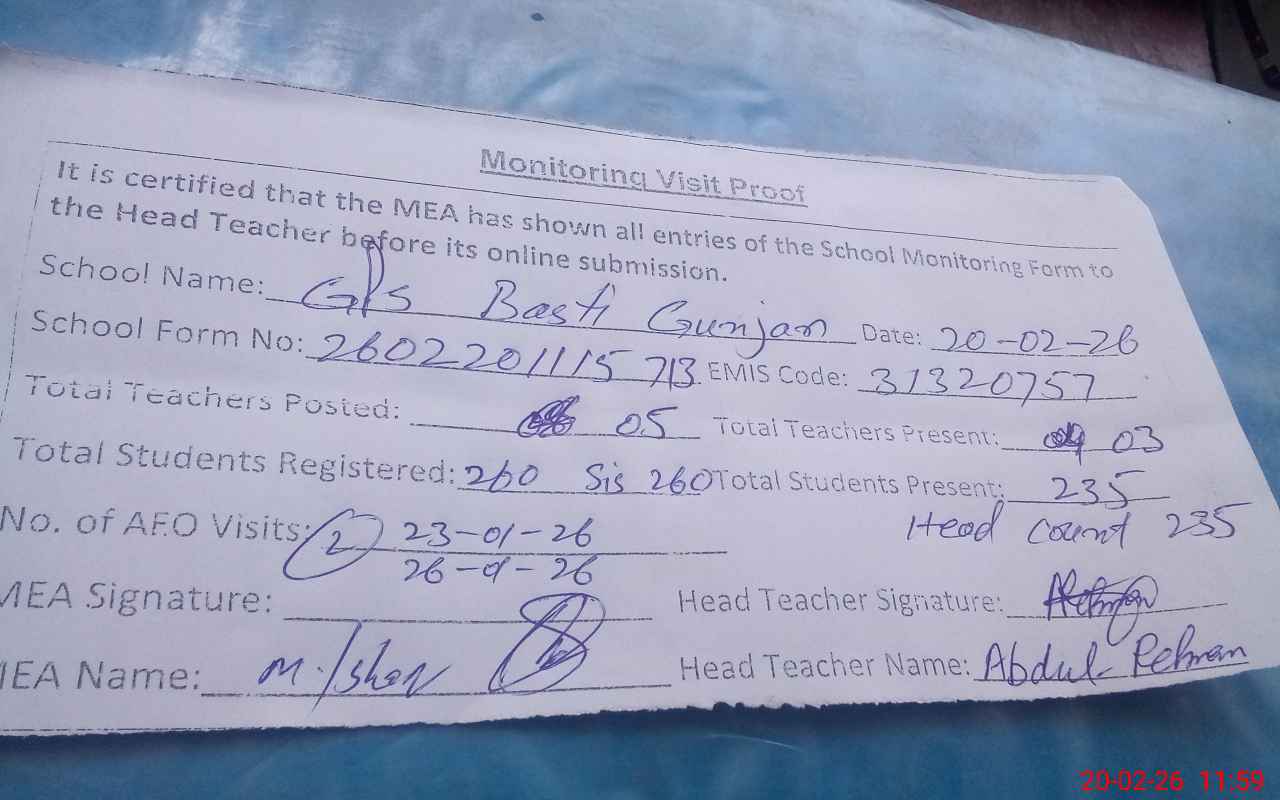 Monitoring Visit Proof
It is certified that the MEA has shown all entries of the School Monitoring Form to
the Head Teacher before its online submission.
School Name: GPS Basti Gunjan Date: 20-02-26
School Form No: 2602201115713 EMIS Code: 31320757
Total Teachers Posted: 05 Total Teachers Present: 03
Total Students Registered: 260 Sis 260 Total Students Present: 235
Head Count 235
No. of AEO Visits: 2 23-01-26
26-01-26
MEA Signature: Head Teacher Signature:
MEA Name: M. Head Teacher Name: Abdul Rehman
20-02-26 11:59